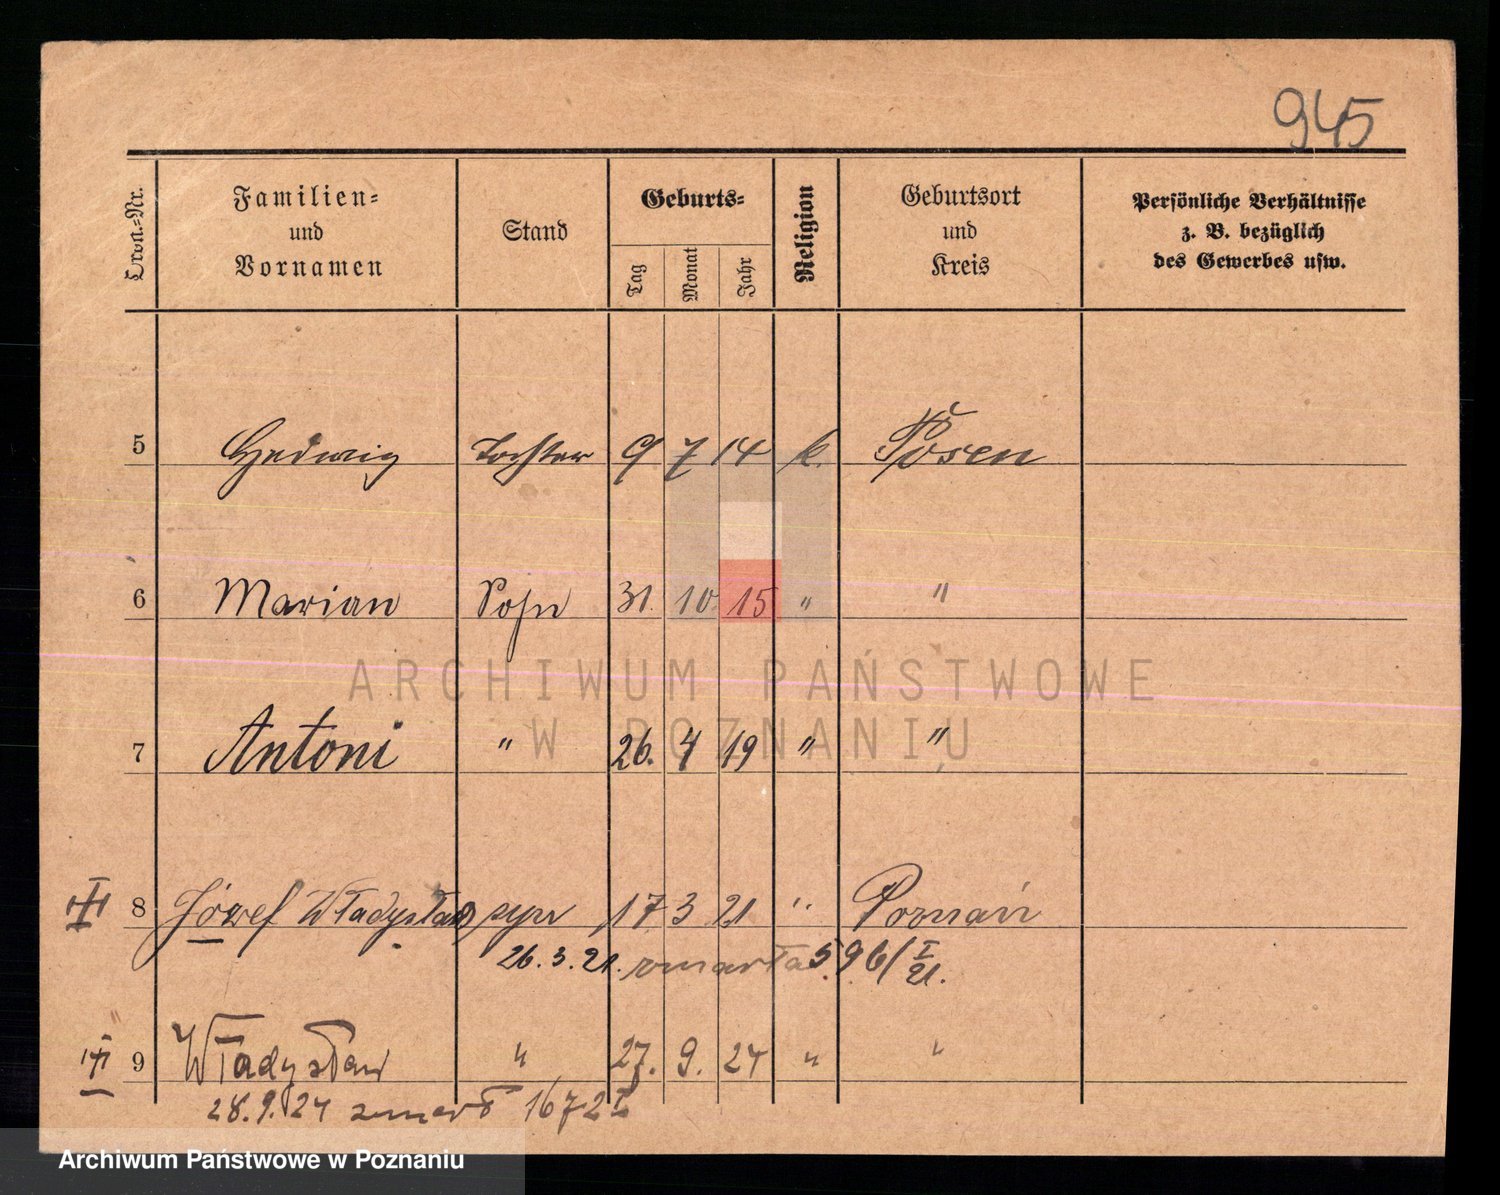 945
Lfde.-Nr. Familien= und Vornamen Stand Geburts= Tag Monat Jahr Religion Geburtsort und Kreis Persönliche Verhältnisse z. B. bezüglich des Gewerbes usw.
5 Hedwig Tochter 9 7 14 k. Posen
6 Marian Sohn 31. 10. 15 " "
ARCHIWUM PAŃSTWOWE
W POZNANIU
7 Antoni " 26. 4 19 " "
8 Józef Władysław syn 17 3 21 " Poznań
26. 3. 21. zmarła 596/I 21.
9 Władysław " 27. 9. 24 " "
28. 9. 24 zmarł 1672 I
Archiwum Państwowe w Poznaniu